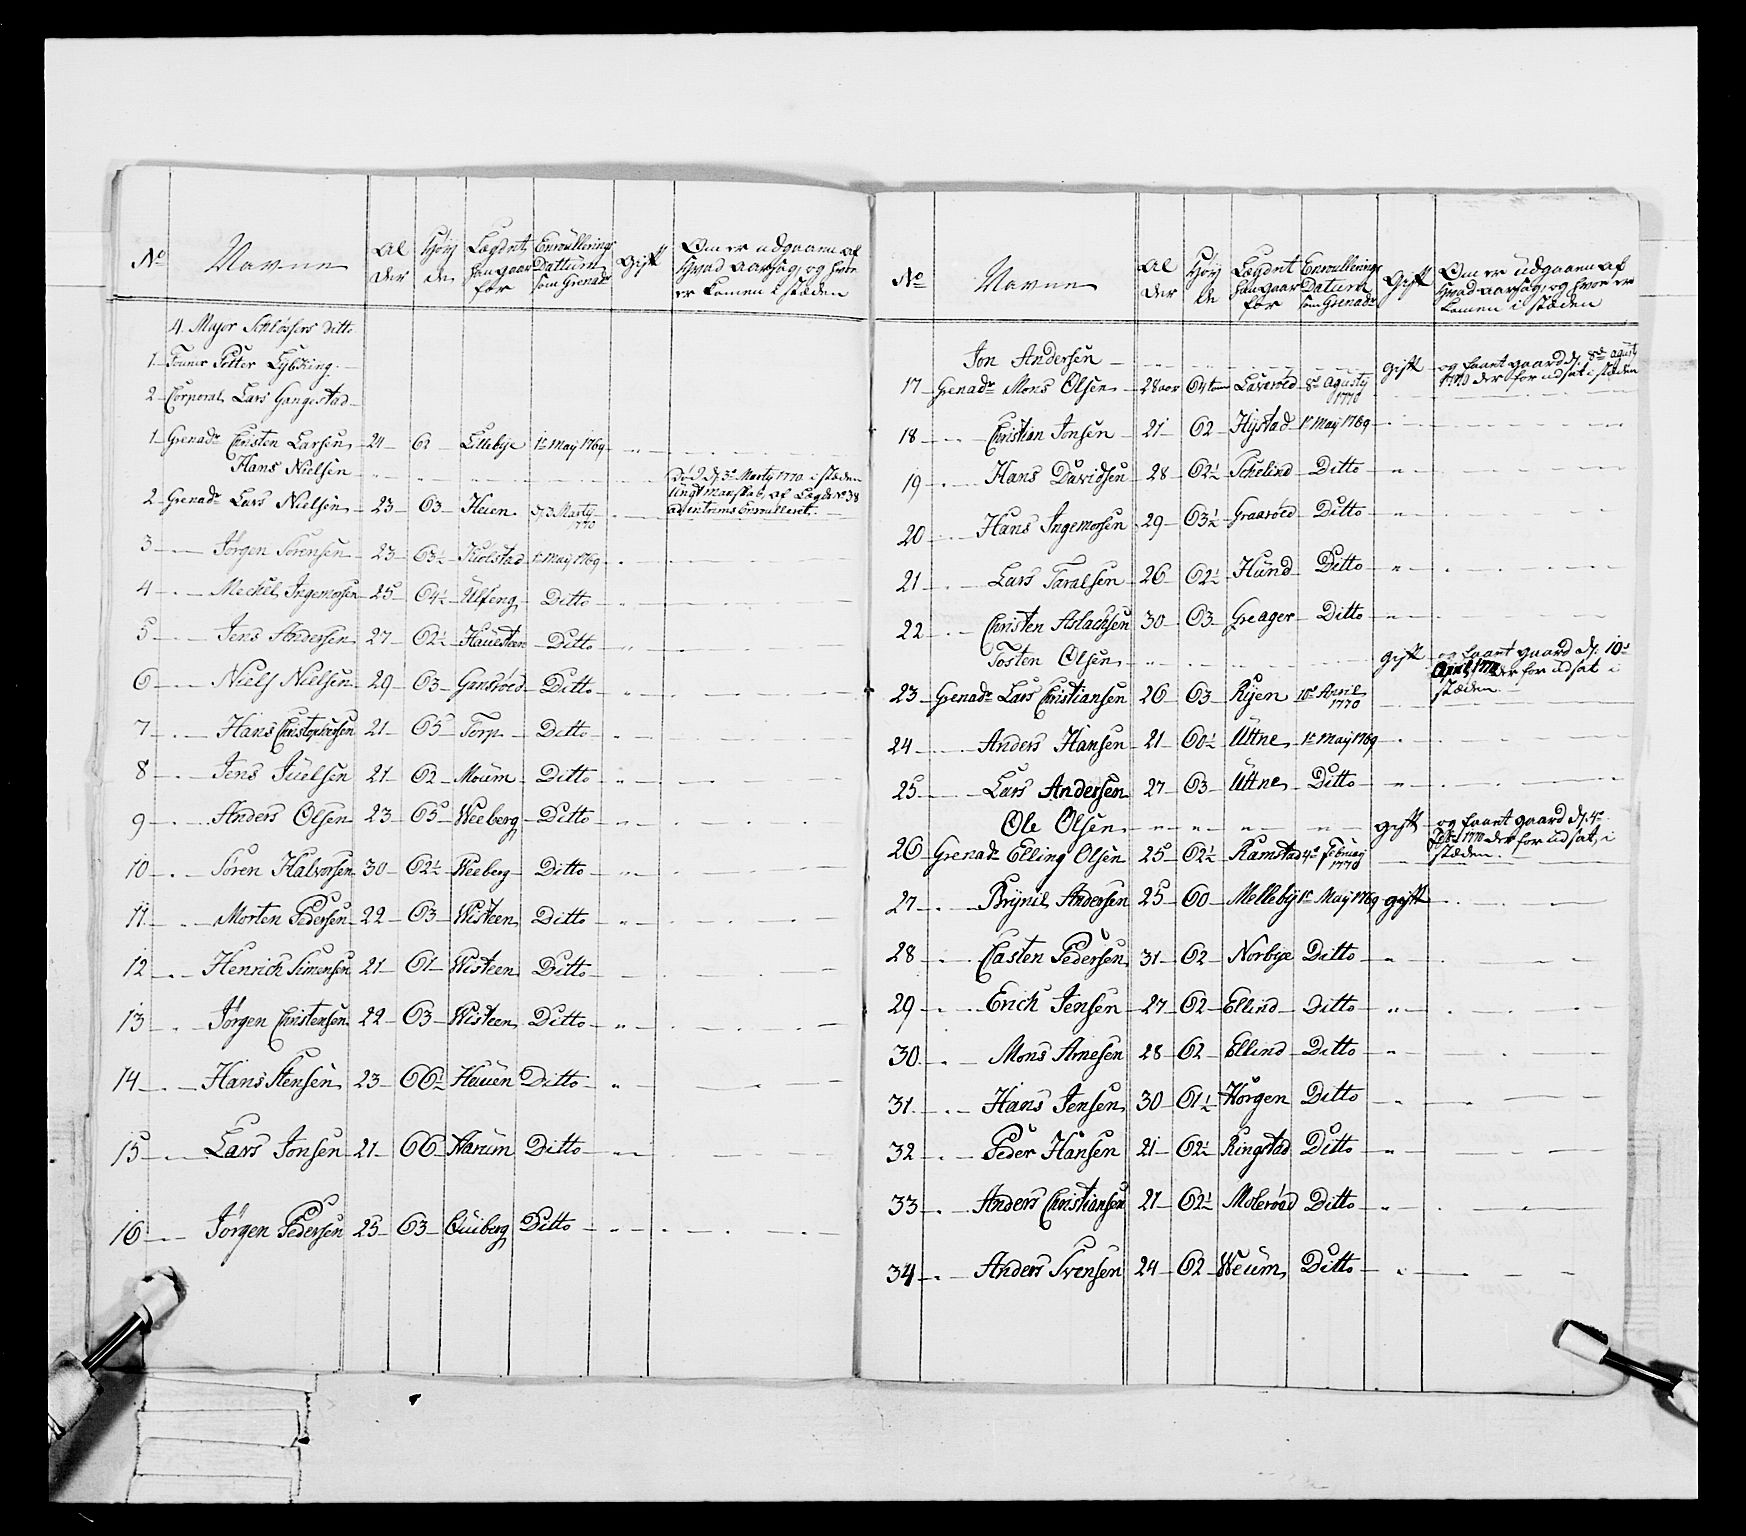 No Navne Al der Høy de Lægdet han gaar for Enroullerings Dattum som Grenadr Gift Om er udgaaen af Hvad aarsag, og hvor er komen i stæden
4. Major Schløssers Ditto
1 Fourer Petter Lybking
2 Corporal Lars Gangestad
1 Grenadr Christen Larsen 24 62 Ellebye 1t May 1769
Hans Nielsen Død d. 3d Marty 1770 i stæden
2 Grenadr Lars Nielsen 23 63 Heien d. 3 Marty 1770
3 Jørgen Sørensen 23 63½ Kiolstad 1t May 1769
4 Meckel Ingemorsen 25 64½ Ulfeng Ditto
5 Jens Andersen 27 62½ Hauesteen Ditto
6 Niels Nielsen 29 63 Gansrøed Ditto
7 Hans Christophersen 21 65 Torp Ditto
8 Jens Juelsen 21 62 Moum Ditto
9 Anders Olsen 23 65 Weeberg Ditto
10 Søren Halvorsen 30 62½ Weeberg Ditto
11 Morten Pedersen 22 63 Wisteen Ditto
12 Henrich Simensen 21 61 Wisteen Ditto
13 Jørgen Christensen 22 63 Wisteen Ditto
14 Hans Stensen 23 66½ Heuen Ditto
15 Lars Jonsen 21 66 Harum Ditto
16 Jørgen Pedersen 25 63 Quiberg Ditto
No Navne Al der Høy de Lægdet han gaar for Enroullerings Datum som Grenadr Gift Om er udgaaen af Hvad aarsag, og hvor er komen i stæden
Jon Andersen Gift og faaet gaard d. 8de Agusty 1770 der for udsat i stæden
17 Grenadr Mons Olsen 28 aar 64 tom Laverød 8d Agusty 1770
18 Christian Jonsen 21 62 Hystad 1t May 1769
19 Hans Davidsen 28 62½ Schelind Ditto
20 Hans Ingemorsen 29 63½ Graarøed Ditto
21 Lars Taralsen 26 62½ Hund Ditto
22 Christen Aslachsen 30 63 Greager Ditto
Tosten Olsen Gift og faaet gaard d. 10d April 1770 der for udsat i stæden
23 Grenadr Lars Christiansen 26 63 Ryen 10d April 1770
24 Anders Hansen 21 60½ Uttne 1t May 1769
25 Lars Andersen 27 63 Uttne Ditto
Ole Olsen Gift og faaet gaard d. 4d Feb. 1770 der for udsat i stæden
26 Grenadr Elling Olsen 25 62½ Ramstad 4d Februay 1770
27 Brynil Andersen 25 60 Melleby 1t May 1769 gift
28 Casten Pedersen 31 62 Norbye Ditto
29 Erich Jensen 27 62 Ellind Ditto
30 Mons Arnesen 28 62 Ellind Ditto
31 Hans Jensen 30 61½ Horgen Ditto
32 Peder Hansen 21 62½ Ringstad Ditto
33 Anders Christiansen 21 62½ Molerød Ditto
34 Anders Svensen 24 62 Weum Ditto